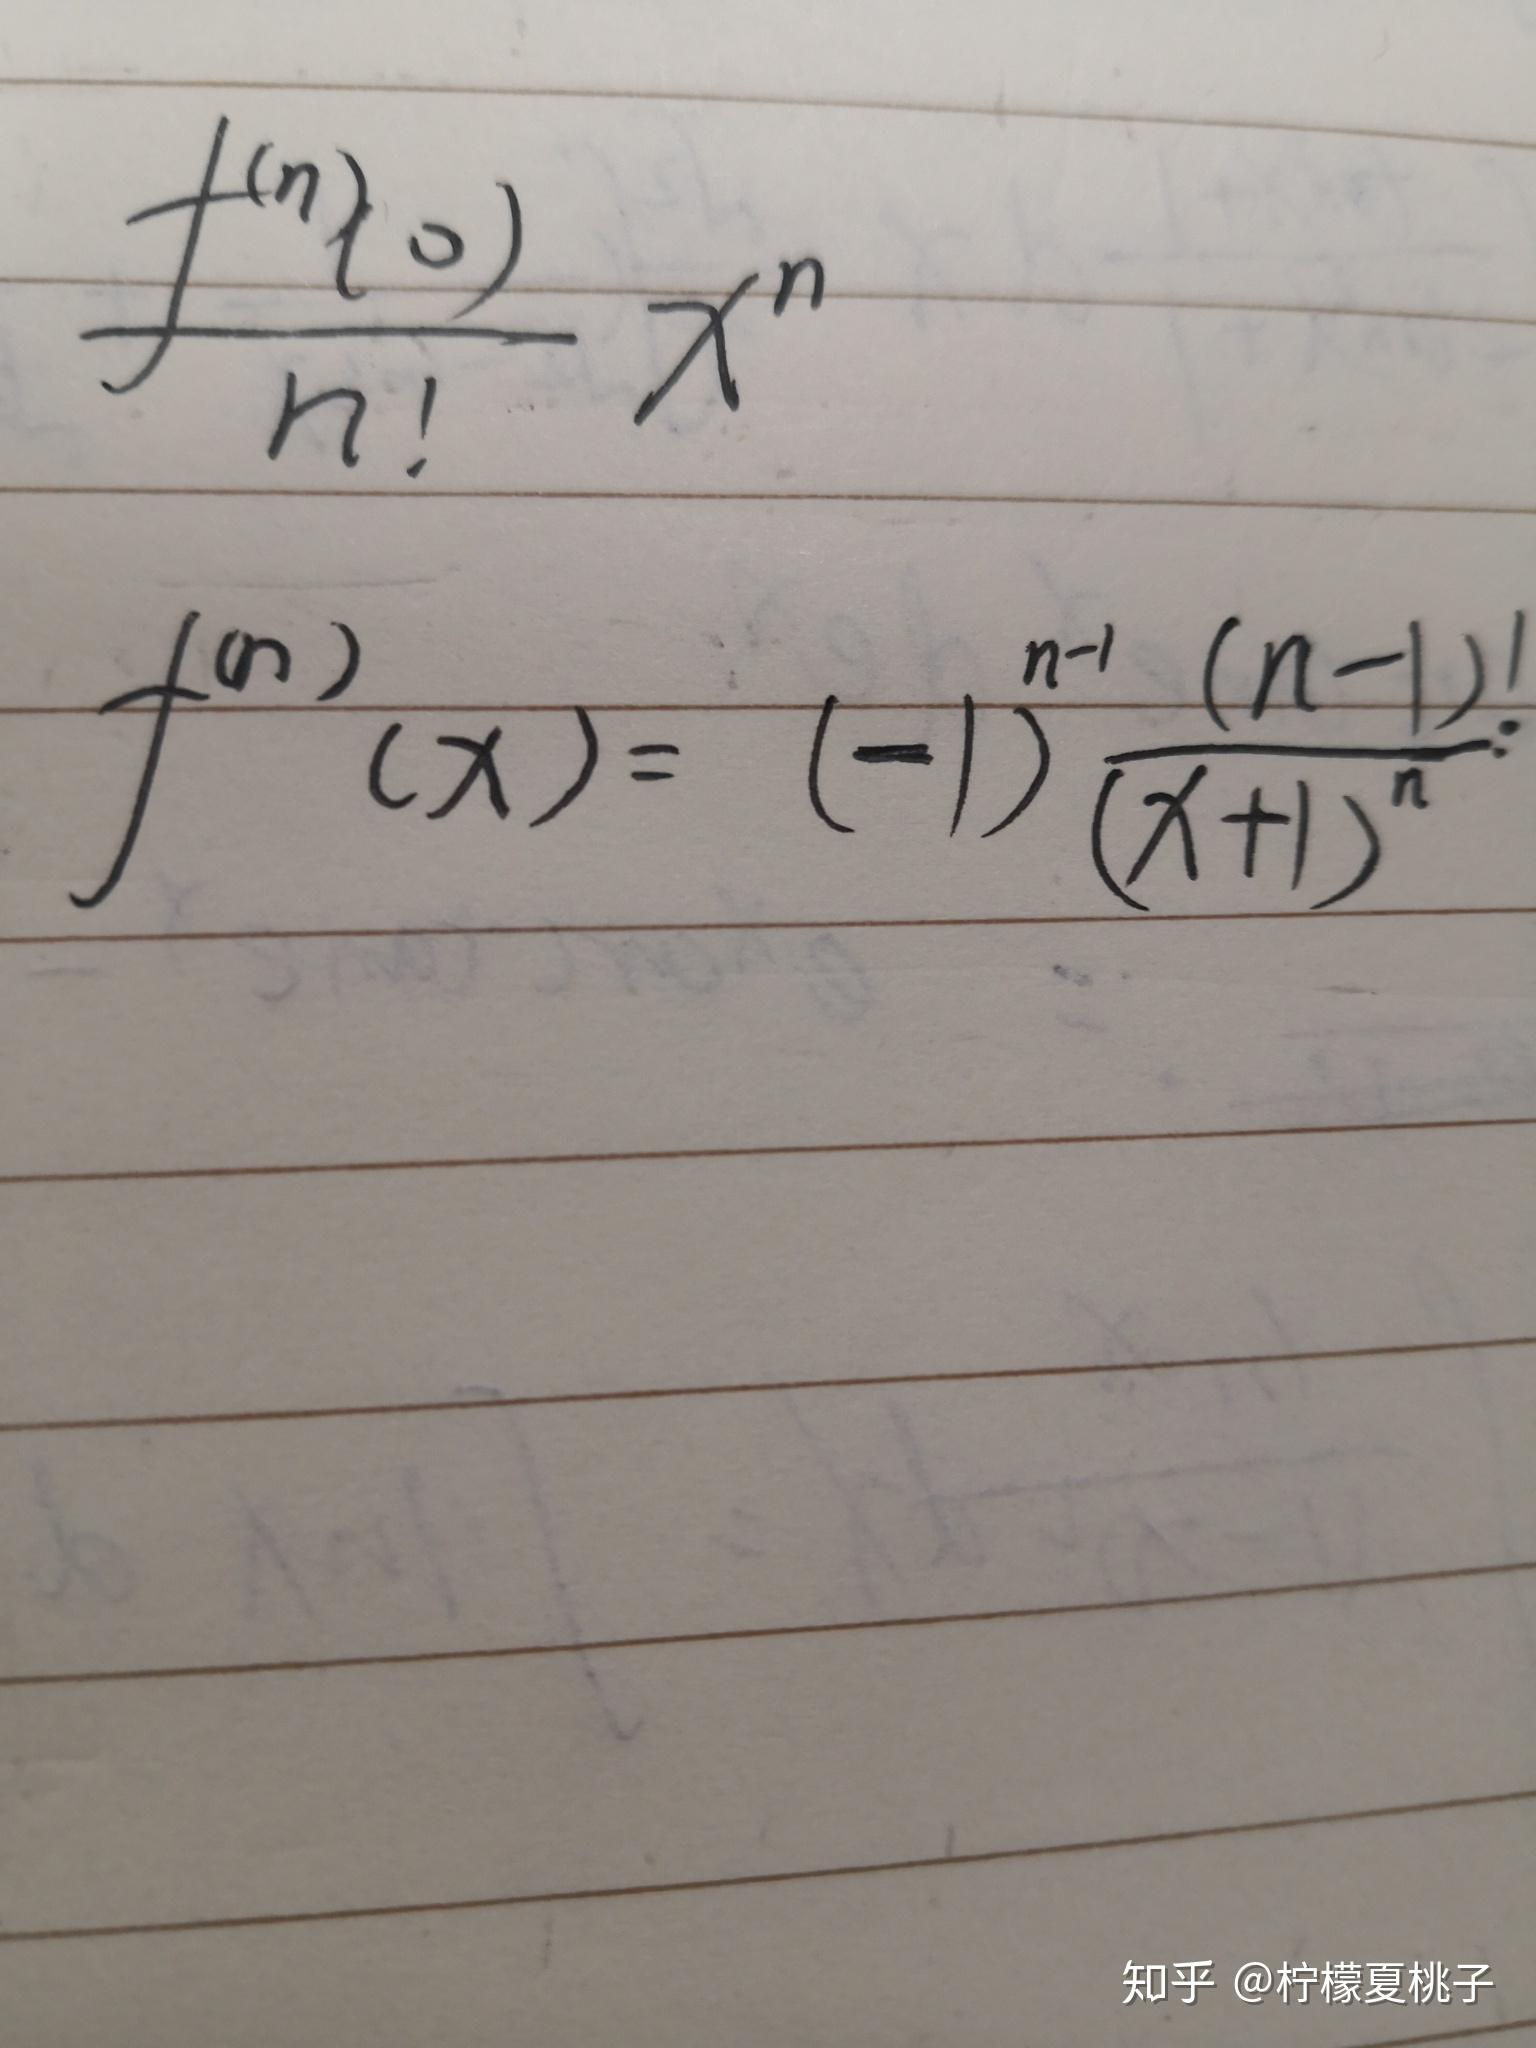 f⁽ⁿ⁾(0)/n! xⁿ
f⁽ⁿ⁾(x) = (-1)ⁿ⁻¹ (n-1)!/(x+1)ⁿ
知乎 @柠檬夏桃子